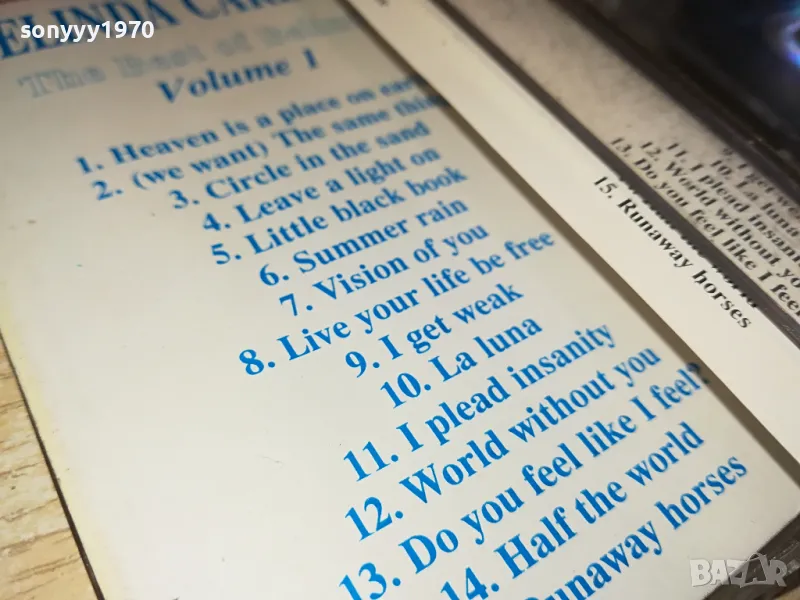 sonyyy1970
ELINDA CAR
The Best of
Volume 1
1. Heaven is a place on ear
2. (we want) The same thin
3. Circle in the sand
4. Leave a light on
5. Little black book
6. Summer rain
7. Vision of you
8. Live your life be free
9. I get weak
10. La luna
11. I plead insanity
12. World without you
13. Do you feel like I feel?
14. Half the world
Runaway horses
9. I get wea
10. La luna
11. I plead insanity
12. World without yo
13. Do you feel like I feel
15. Runaway horses
BAZAR